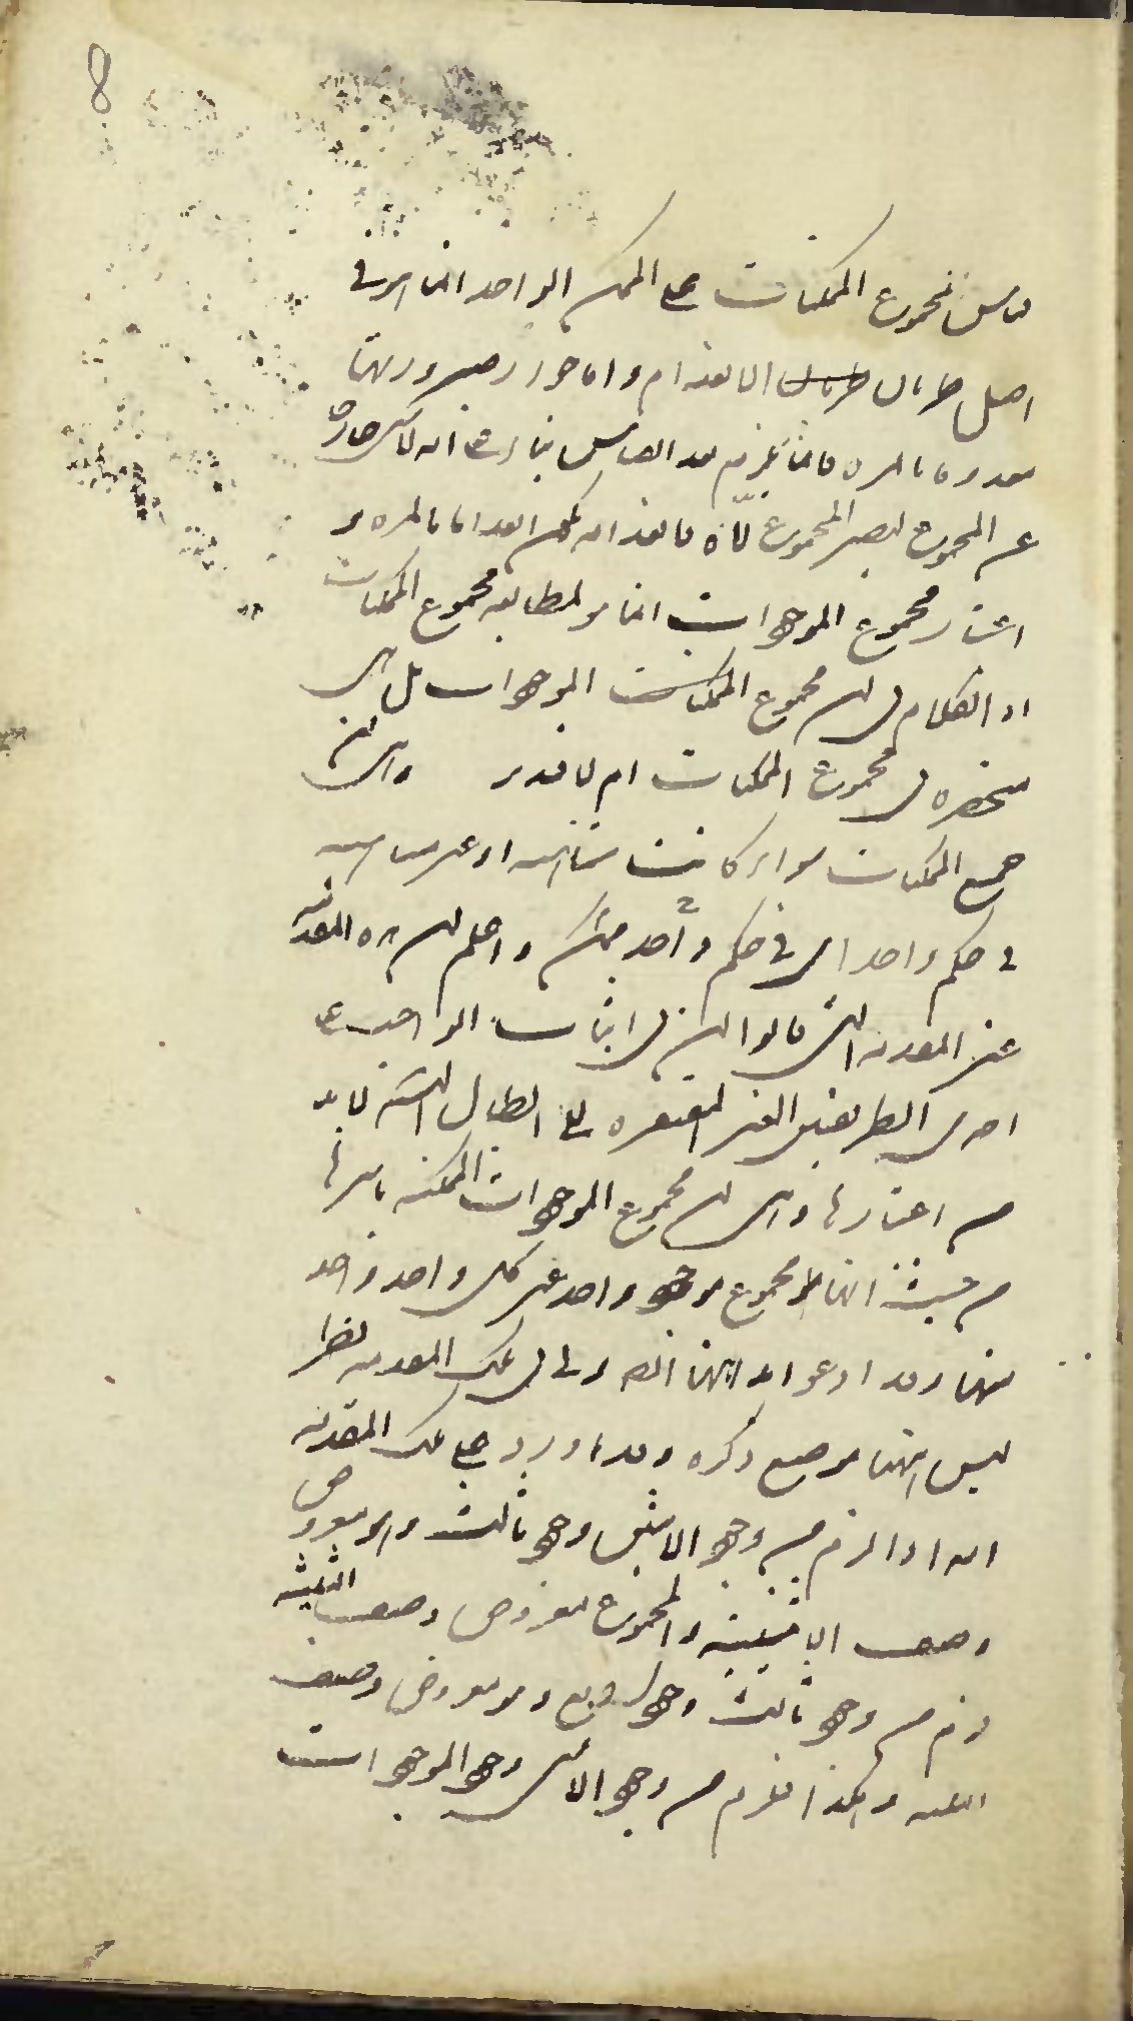 8
قياس مجموع الممكنات على الممكن الواحد انما هو في
اصل طريان الانعدام واما جواز صيرورتها
معدوما بالمره فانما يلزم بعد القياس بناء على انه لا شي خارجا
عن المجموع ليصير المجموع لانه فانعدامه يكون انعداما بالمره و
اعتبار مجموع الموجودات انما هو لمطابقه مجموع الممكنات
اذ الكلام في ان مجموع الممكنات الموجودات هل هي
منحصره في مجموع الممكنات ام لا فتدبر
جميع الممكنات سواء كانت متناهيه او غير متناهيه
في حكم واحد اي في حكم واحد ممكن واعلم ان هذه المقدمه
غير المقدمه التي قالوا ان في اثبات الواجب على
احدى الطريقين الغير المفتقره الى ابطال التسلسل لابد
من اعتبارها وهي ان مجموع الموجودات الممكنه باسرها
من حيث انها مجموع موجود واحد غير كل واحد واحد
منها وقد ادعوا بداهتها ايضا ولي في تلك المقدمه نظر
ليس ههنا موضع ذكره وقد اورد على تلك المقدمه
انه اذا لزم من وجود الاثنين وجود ثالث وهو معروض
وصف الاثنينيه والمجموع معروض وصف الثلثيه
لزم من وجود ثالث وجود رابع وهو معروض وصف
الثلثيه وهكذا فيلزم من وجود الاثنين وجود الموجودات